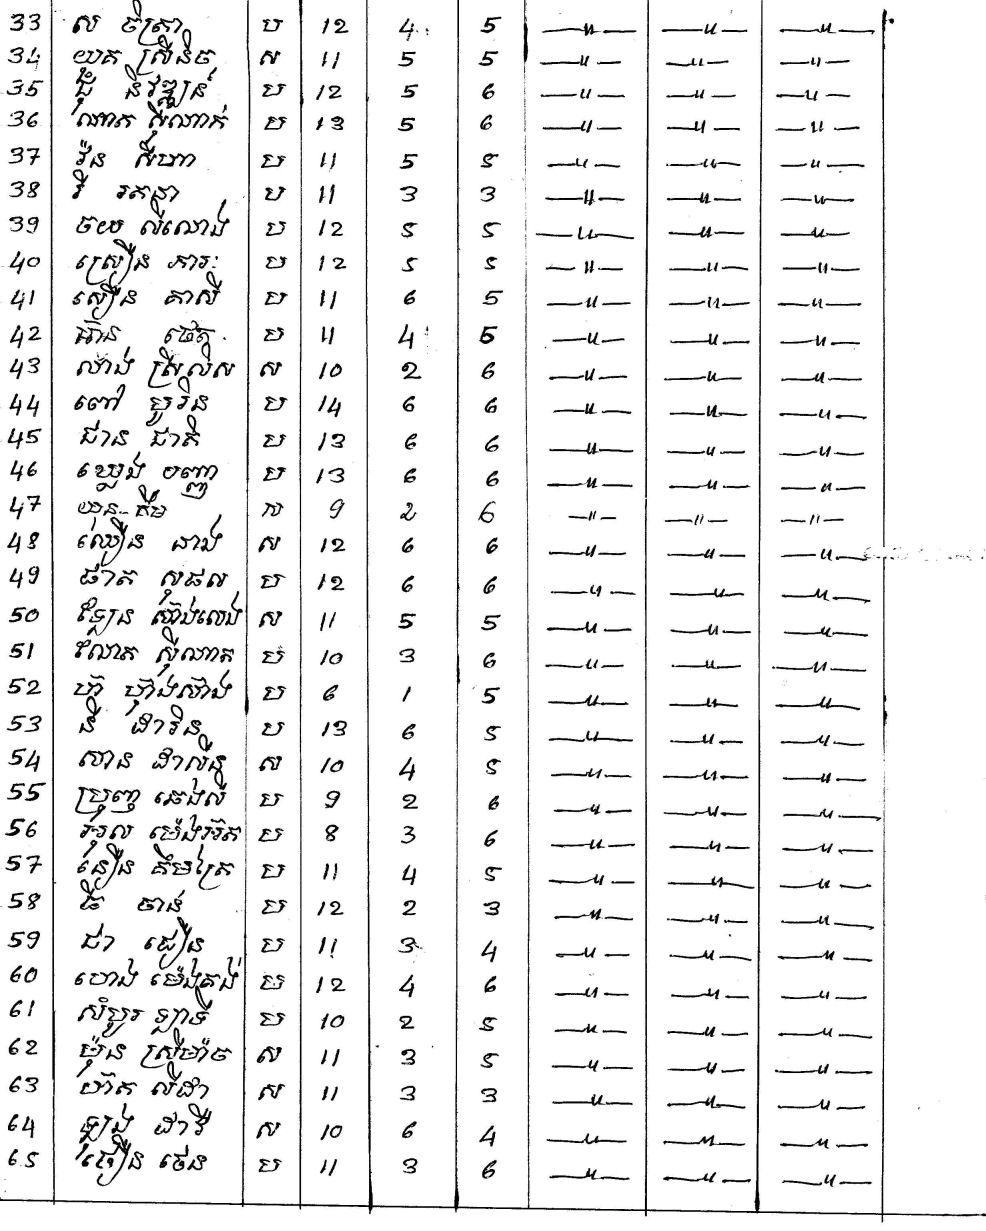 33 ស ចិត្រា ប 12 4 5 —〃— —〃— —〃—
34 យុត ស្រីនិច ស 11 5 5 —〃— —〃— —〃—
35 ប 12 5 6 —〃— —〃— —〃—
36 ណាត ស៊ីណាក់ ប 13 5 6 —〃— —〃— —〃—
37 វ៉ន សីហា ប 11 5 5 —〃— —〃— —〃—
38 រី រតនា ប 11 3 3 —〃— —〃— —〃—
39 ចយ លីណោង ប 12 5 5 —〃— —〃— —〃—
40 ស្រឿន ភារៈ ប 12 5 5 —〃— —〃— —〃—
41 សឿន តាសី ប 11 6 5 —〃— —〃— —〃—
42 អ៊ាន ប 11 4 5 —〃— —〃— —〃—
43 លាង ស្រីលីស ស 10 2 6 —〃— —〃— —〃—
44 ពៅ បូរិន ប 14 6 6 —〃— —〃— —〃—
45 ជាន ជាតិ ប 13 6 6 —〃— —〃— —〃—
46 ឃ្លេង បញ្ញា ប 13 6 6 —〃— —〃— —〃—
47 យុន គីម ស 9 2 6 —〃— —〃— —〃—
48 ឈឿន នាង ស 12 6 6 —〃— —〃— —〃—
49 ផាត សុផល ប 12 6 6 —〃— —〃— —〃—
50 ស 11 5 5 —〃— —〃— —〃—
51 ណែត ស៊ីណាត ប 10 3 6 —〃— —〃— —〃—
52 ប 6 1 5 —〃— —〃— —〃—
53 នី ដារិន ប 13 6 5 —〃— —〃— —〃—
54 សាន ដាលីន ស 10 4 5 —〃— —〃— —〃—
55 ប្រុញ ឆេងលី ប 9 2 6 —〃— —〃— —〃—
56 ប 8 3 6 —〃— —〃— —〃—
57 នឿន គឹមត្រៃ ប 11 4 5 —〃— —〃— —〃—
58 ធី ចាន់ ប 12 2 3 —〃— —〃— —〃—
59 ជា ជឿន ប 11 3 4 —〃— —〃— —〃—
60 ហេង ម៉េងគង់ ប 12 4 6 —〃— —〃— —〃—
61 សំបូរ ឡាទី ប 10 2 5 —〃— —〃— —〃—
62 ម៉ុន ស្រីម៉ាច ស 11 3 5 —〃— —〃— —〃—
63 ហ៊ាត លីដា ស 11 3 3 —〃— —〃— —〃—
64 ឡុង ដាវី ស 10 6 4 —〃— —〃— —〃—
65 ជឿន ថេន ប 11 3 6 —〃— —〃— —〃—